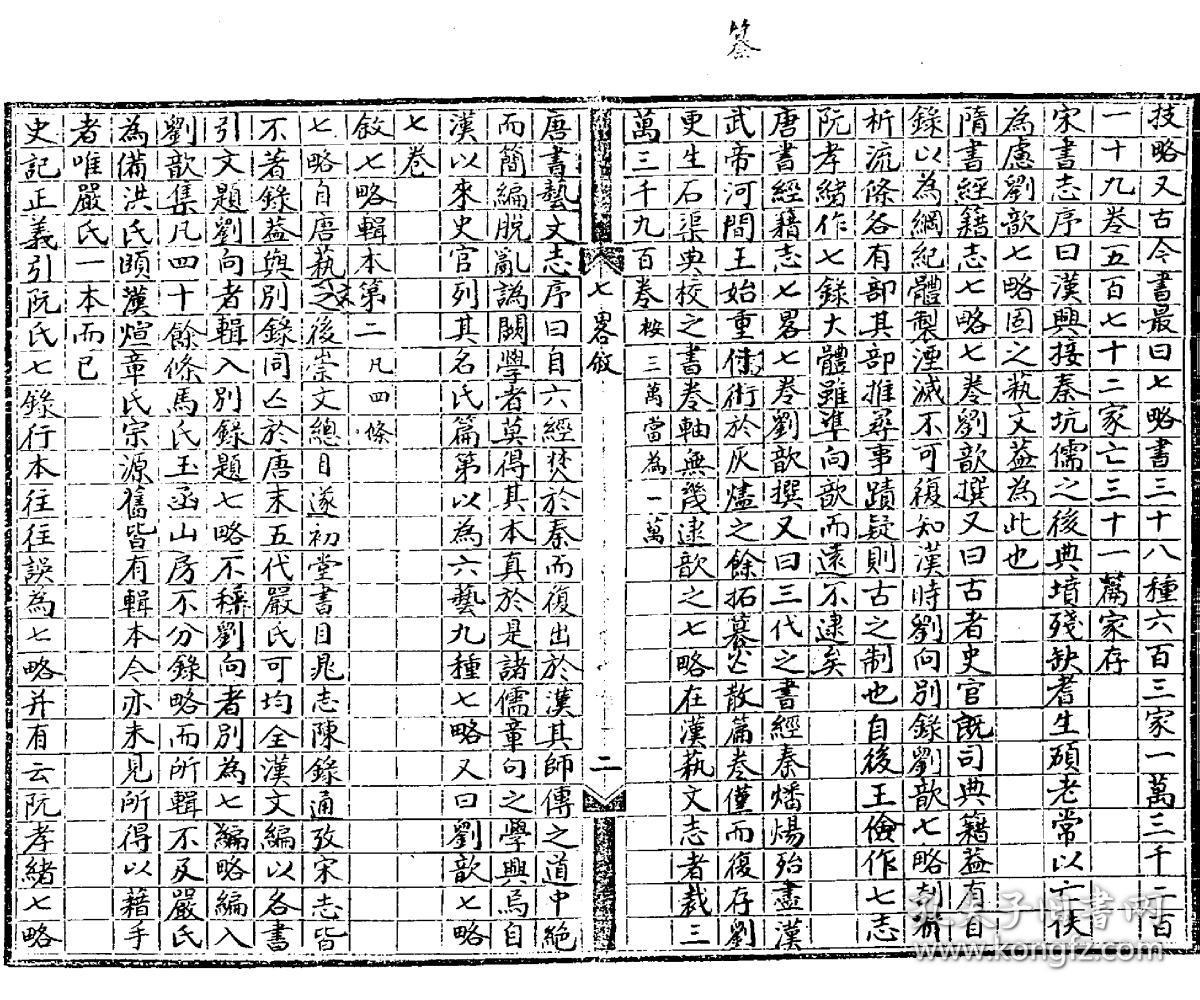 篡
技略又古今書最曰七略書三十八種六百三家一萬三千二百
一十九卷五百七十二家亡三十一萹家存
宋書志序曰漢興接秦坑儒之後典墳殘缺耆生碩老常以亡佚
為慮劉歆七略固之蓺文葢為此也
隋書經籍志七略七卷劉歆撰又曰古者史官既司典籍葢有目
錄以為綱紀體製湮滅不可復知漢時劉向別錄劉歆七略剖
析流條各有部其部推尋事蹟疑則古之制也自後王儉作七志
阮孝緒作七錄大體雖準向歆而遠不逮矣
唐書經籍志七畧七卷劉歆撰又曰三代之書經秦燔煬殆盡漢
武帝河間王始重儒術於灰燼之餘拓纂亡散篇卷僅而復存劉
更生石渠典校之書卷軸無幾逮歆之七略在漢蓺文志者裁三
萬三千九百卷 桉三萬當為一萬
七畧敘
二
唐書藝文志序曰自六經焚於秦而復出於漢其師傳之道中絕
而簡編脫亂譌闕學者莫得其本真於是諸儒章句之學興焉自
漢以來史官列其名氏篇第以為六藝九種七略又曰劉歆七略
七卷
敘七略輯本第二 凡四條
七略自唐蓺文之後崇文總目遂初堂書目晁志陳錄通攷宋志皆
不著錄葢與別錄同亡於唐末五代嚴氏可均全漢文編以各書
引文題劉向者輯入別錄題七略不稱劉向者別為七略編入
劉歆集凡四十餘條馬氏玉函山房不分錄略而所輯不及嚴氏
為備洪氏頤漢煊章氏宗源舊皆有輯本今亦未見所得以藉手
者唯嚴氏一本而已
史記正義引阮氏七錄行本往往誤為七略并有云阮孝緒七略
孔夫子旧书网
www.kongfz.com